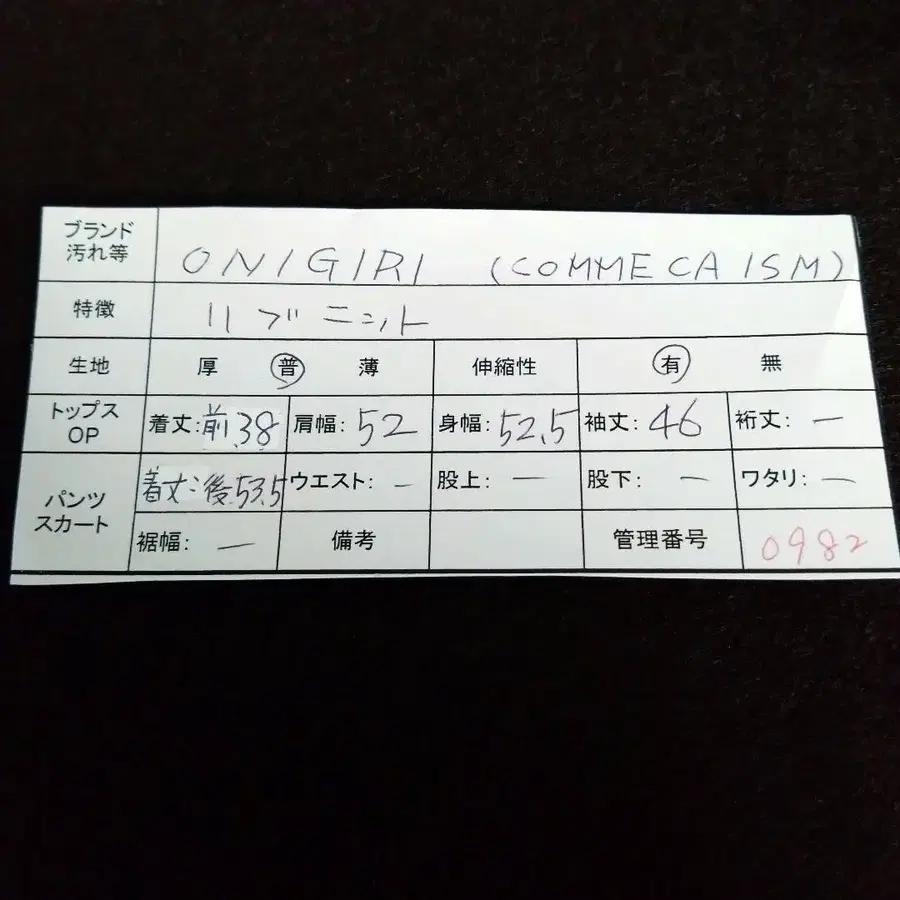 ブランド
汚れ等
ONIGIRI (COMME CA ISM)
特徴 リブニット
生地 厚 普 薄 伸縮性 有 無
トップス
OP
着丈:前38 肩幅:52 身幅:52.5 袖丈:46 裄丈:ー
パンツ
スカート
着丈:後53.5 ウエスト:ー 股上:ー 股下:ー ワタリ:ー
裾幅:ー 備考 管理番号 0982